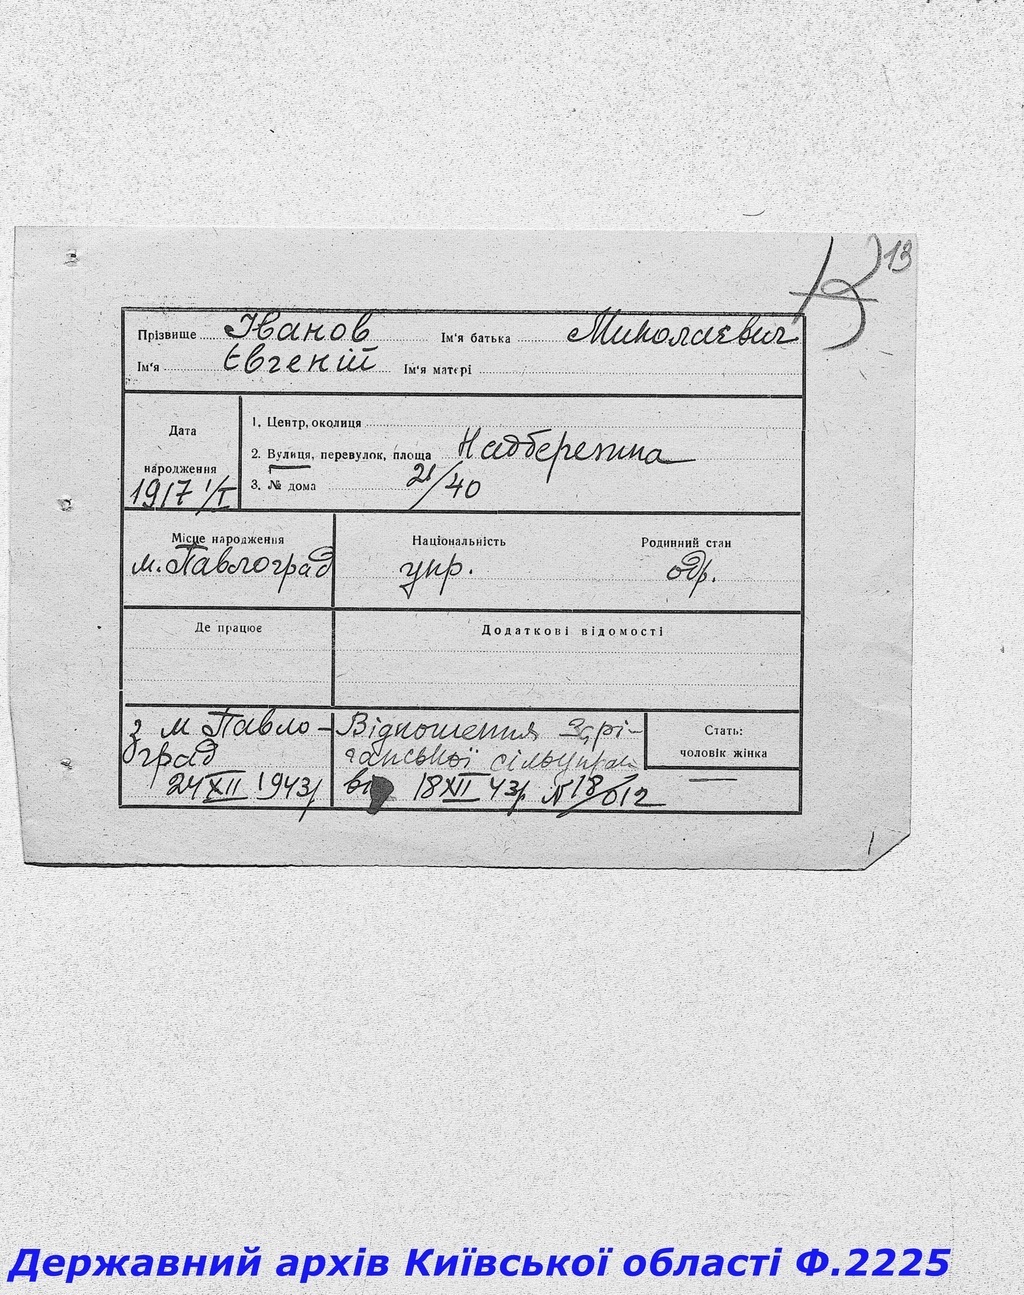 13
Прізвище Іванов Ім'я батька Миколаєвич
Ім'я Євгеній Ім'я матері
Дата народження
1917 1/I
1. Центр, околиця
2. Вулиця, перевулок, площа Надбережна
3. № дома 21/40
Місце народження
м. Павлоград
Національність
укр.
Родинний стан
одр.
Де працює
Додаткові відомості
з м Павло-
град
24 XII 1943р
Відношення Зарі-
чанської сільуправ
18 XII 43р N 18/612
Стать:
чоловік жінка
Державний архів Київської області Ф.2225